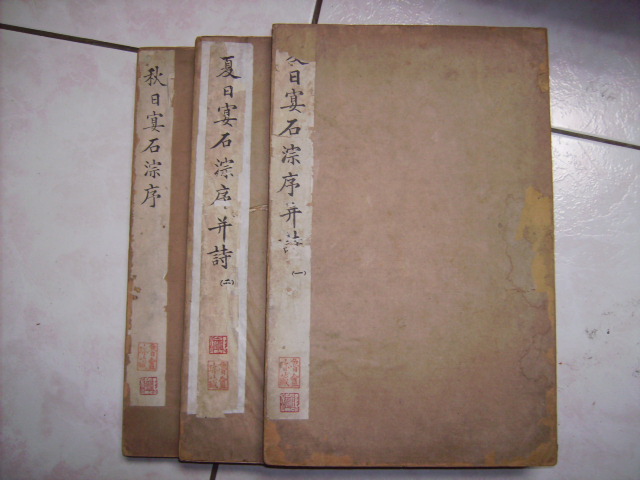 日宴石淙序并詩
(一)
夏日宴石淙序并詩
(二)
秋日宴石淙序